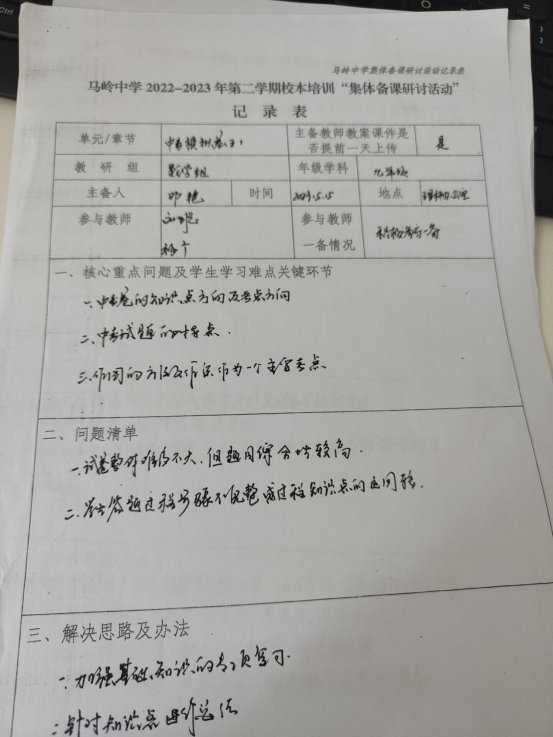 马岭中学集体备课研讨活动记录表
马岭中学 2022-2023 年第二学期校本培训“集体备课研讨活动”
记 录 表
单元/章节 中考模拟卷 主备教师教案课件是否提前一天上传 是
教 研 组 数学组 年级学科 九年级
主备人 邓艳 时间 2023.5.15 地点
参与教师 参与教师一备情况
一、核心重点问题及学生学习难点关键环节
一、中考卷的知识点方向及考点方向
二、中考试题的特点.
三、作图的方法及作法作为一个主要考点
二、问题清单
一、试卷整体难度不大,但题目综合性较高.
二、学生答题过程步骤不完整或过程知识点的
三、解决思路及办法
一、加强基础知识的专项复习.
二、针对知识点进行总结